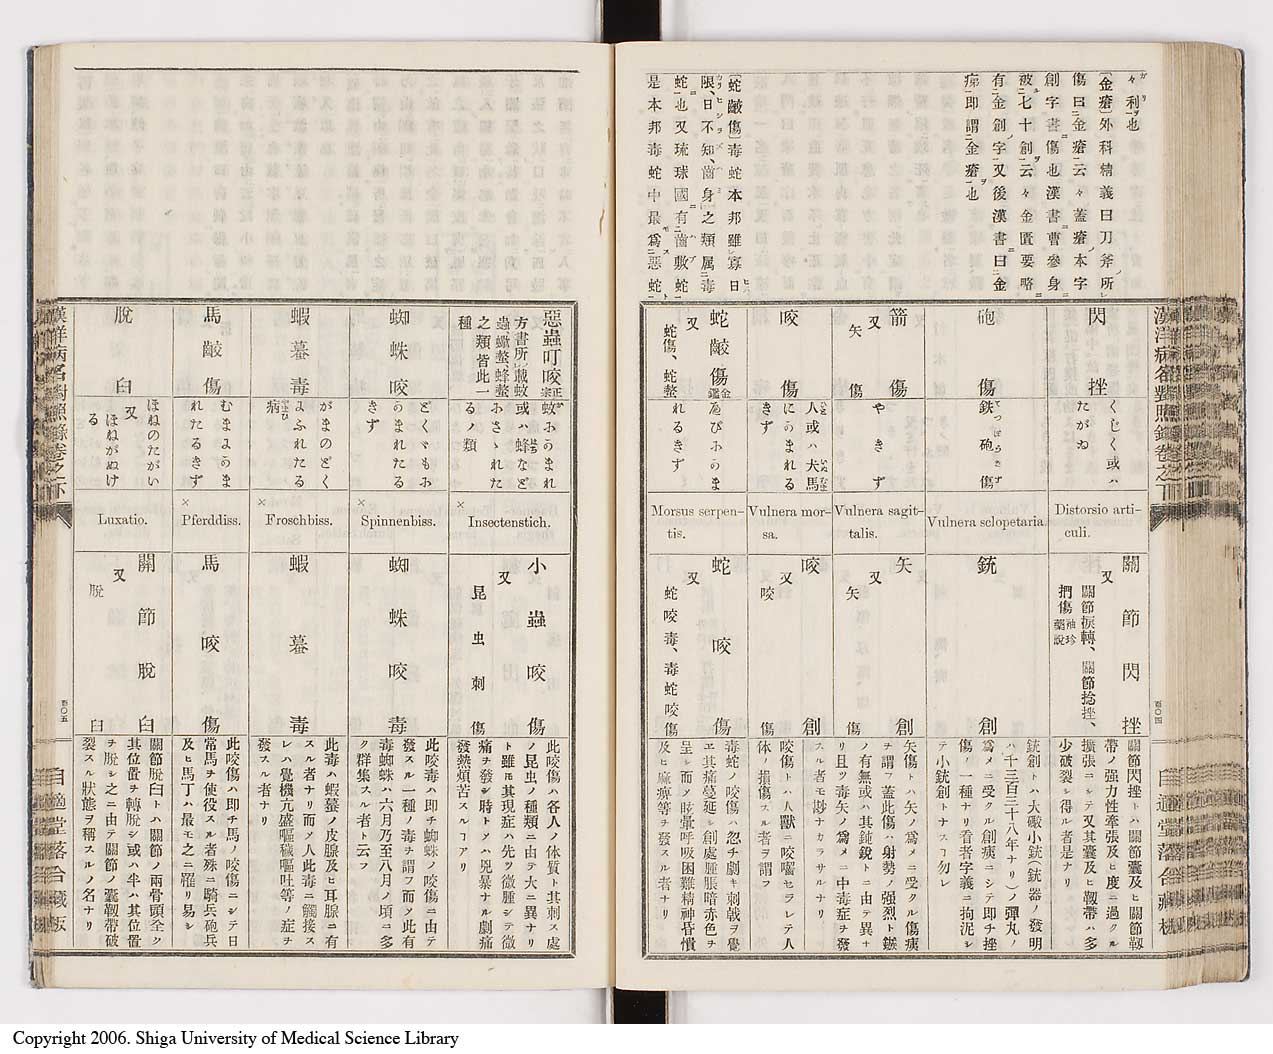 々利ヲ也
〔金瘡〕外科精義曰刀斧ノ所レ
傷曰二金瘡一云々蓋瘡ノ本字
創字書傷也漢書曹參身
被二七十創一云々金匱要略ニ
有二金創ノ字一又後漢書曰二金
痍一即謂二金瘡ヲ一也
〔蛇齩傷〕毒蛇本邦雖レ寡日
限、日不知、齒身之類属二毒
蛇一也又琉球國ニ有二齒敷蛇一
是本邦毒蛇中最爲二惡蛇一ト
漢洋病名對照錄卷之下
閃挫
くじく或ハ
たがゐ
Distorsio arti-
culi.
關節閃挫
又
關節捩轉、關節捻挫、
捫傷袖珍藥說
關節閃挫トハ關節囊及ヒ關節靱
帶ノ强力性牽張及ヒ度ニ過クル
擴張ニシテ又其囊及ヒ靱帶ハ多
少破裂シ得ル者是ナリ
砲傷
鉄砲傷
Vulnera sclopetaria.
銃創
銃創トハ大礮小銃(銃器ノ發明
ハ千三百三十八年ナリ)ノ彈丸ノ
爲メニ受クル創痍ニシテ即チ挫
傷ノ一種ナリ看者字義ニ拘泥シ
テ小銃創トナスヿ勿レ
箭傷
又
矢傷
やきず
Vulnera sagit-
talis.
矢創
又
矢傷
矢傷トハ矢ノ爲メニ受クル傷痍
ヲ謂フ蓋此傷ハ射勢ノ强烈ト鏃
ノ有無或ハ其鈍銳トニ由テ異ナ
リ且ツ毒矢ノ爲メニ中毒症ヲ發
スル者モ尠ナカラサルナリ
咬傷
人或ハ犬馬
にかまれる
きず
Vulnera mor-
sa.
咬創
又
咬傷
咬傷トハ人獸ニ咬囓セラレテ人
体ノ損傷スル者ヲ謂フ
蛇齩傷金鑑
又
蛇傷、蛇螫
へびにかま
れるきず
Morsus serpen-
tis.
蛇咬傷
又
蛇咬毒、毒蛇咬傷
毒蛇ノ咬傷ハ忽チ劇キ刺戟ヲ覺
エ其痛蔓延シ創處腫脹暗赤色ヲ
呈シ而メ眩暈呼吸困難精神昏憒
及ヒ麻痺等ヲ發スル者ナリ
百〇四
自適堂落合藏板
惡蟲叮咬正宗
方書所レ載蚊
蟲、蠍螫、蜂螫
之類皆此一
種
蚊にかまれ
或ハ蜂など
にさゝれた
るノ類
×
Insectenstich.
小蟲咬傷
又
昆虫刺傷
此咬傷ハ各人ノ体質ト其刺ス處
ノ昆虫ノ種類ニ由テ大ニ異ナリ
ト雖𪜈其現症ハ先ツ微腫シテ微
痛ヲ發シ時トメハ兇暴ナル劇痛
發熱煩苦スルヿアリ
蜘蛛咬
どくゝもに
かまれたる
きず
×
Spinnenbiss.
蜘蛛咬毒
此咬毒ハ即チ蜘蛛ノ咬傷ニ由テ
發スル一種ノ毒ヲ謂フ而メ此有
毒蜘蛛ハ六月乃至八月ノ頃ニ多
ク群集スル者ト云フ
蝦蟇毒
がまのどく
にふれたる
病
×
Froschbiss.
蝦蟇毒
此毒ハ蝦蟇ノ皮腺及ヒ耳腺ニ有
スル者ナリ而メ人此毒ニ觸接ス
レハ覺機亢盛嘔穢嘔吐等ノ症ヲ
發スル者ナリ
馬齩傷
むまにかま
れたるきず
×
Pferddiss.
馬咬傷
此咬傷ハ即チ馬ノ咬傷ニシテ日
常馬ヲ使役スル者殊ニ騎兵砲兵
及ヒ馬丁ハ最モ之ニ罹リ易シ
脫臼
ほねのたがい
又
ほねがぬけ
る
Luxatio.
關節脫臼
又
脫臼
關節脫臼トハ關節ノ兩骨頭全ク
其位置ヲ轉脫シ或ハ半ハ其位置
ヲ脫シ之ニ由テ關節ノ囊靱帶破
裂スル狀態ヲ稱スルノ名ナリ
漢洋病名對照錄卷之下
百〇五
自適堂落合藏板
Copyright 2006. Shiga University of Medical Science Library